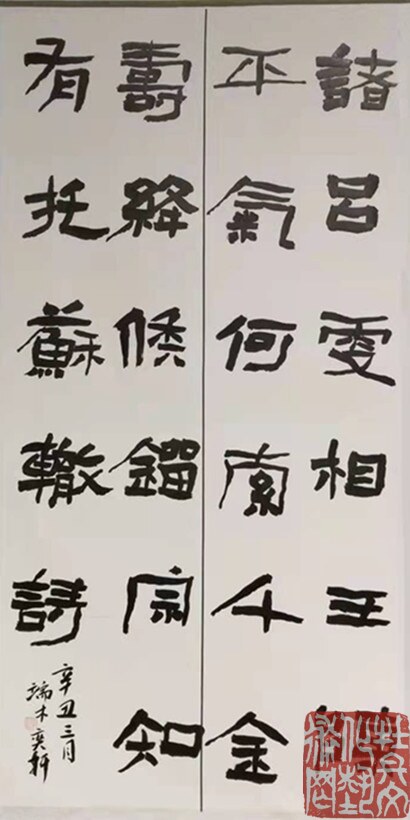 諸呂更相王
平氣何索千金
壽絳侯鎦宗知
有托蘇轍詩
辛丑三月
端木奕軒